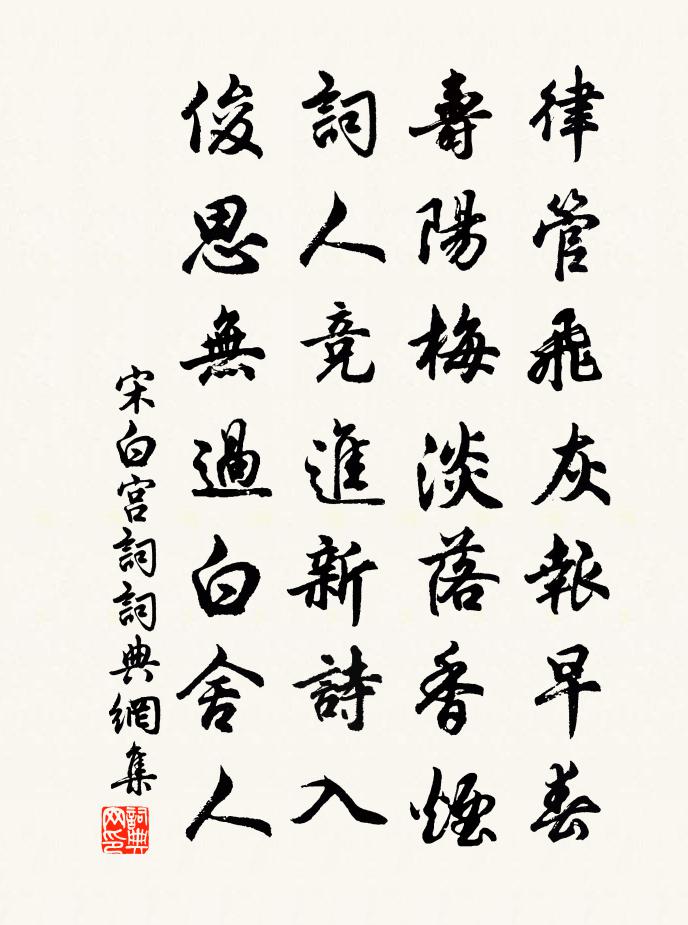 律管飛灰報早春
壽陽梅淡落香煙
詞人竞進新詩入
俊思無過白舍人
宋白宮詞詞典網集
詞典网印